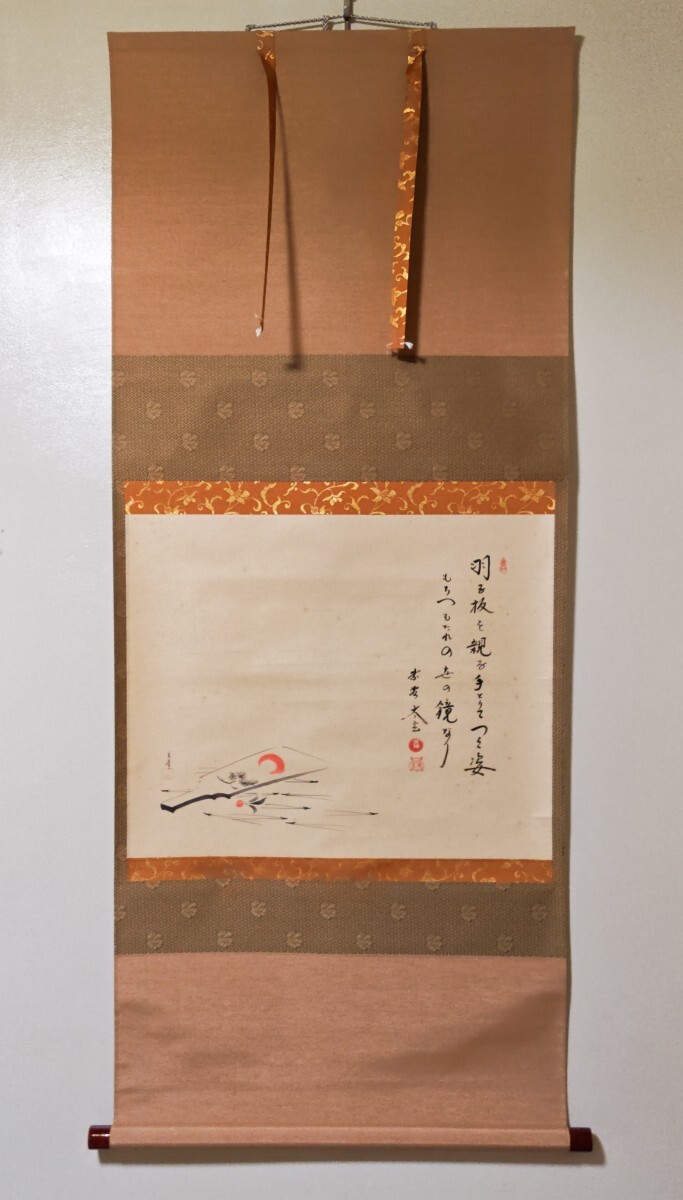 羽子板を親子手とりてつく姿
もちつもたれの世の鏡なり